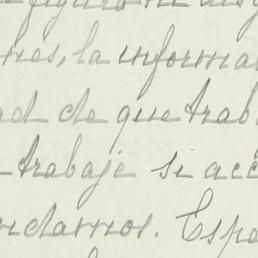 figuro ni
nes, la informa
d de que trab
trabaje si acc
ndamos. Espe